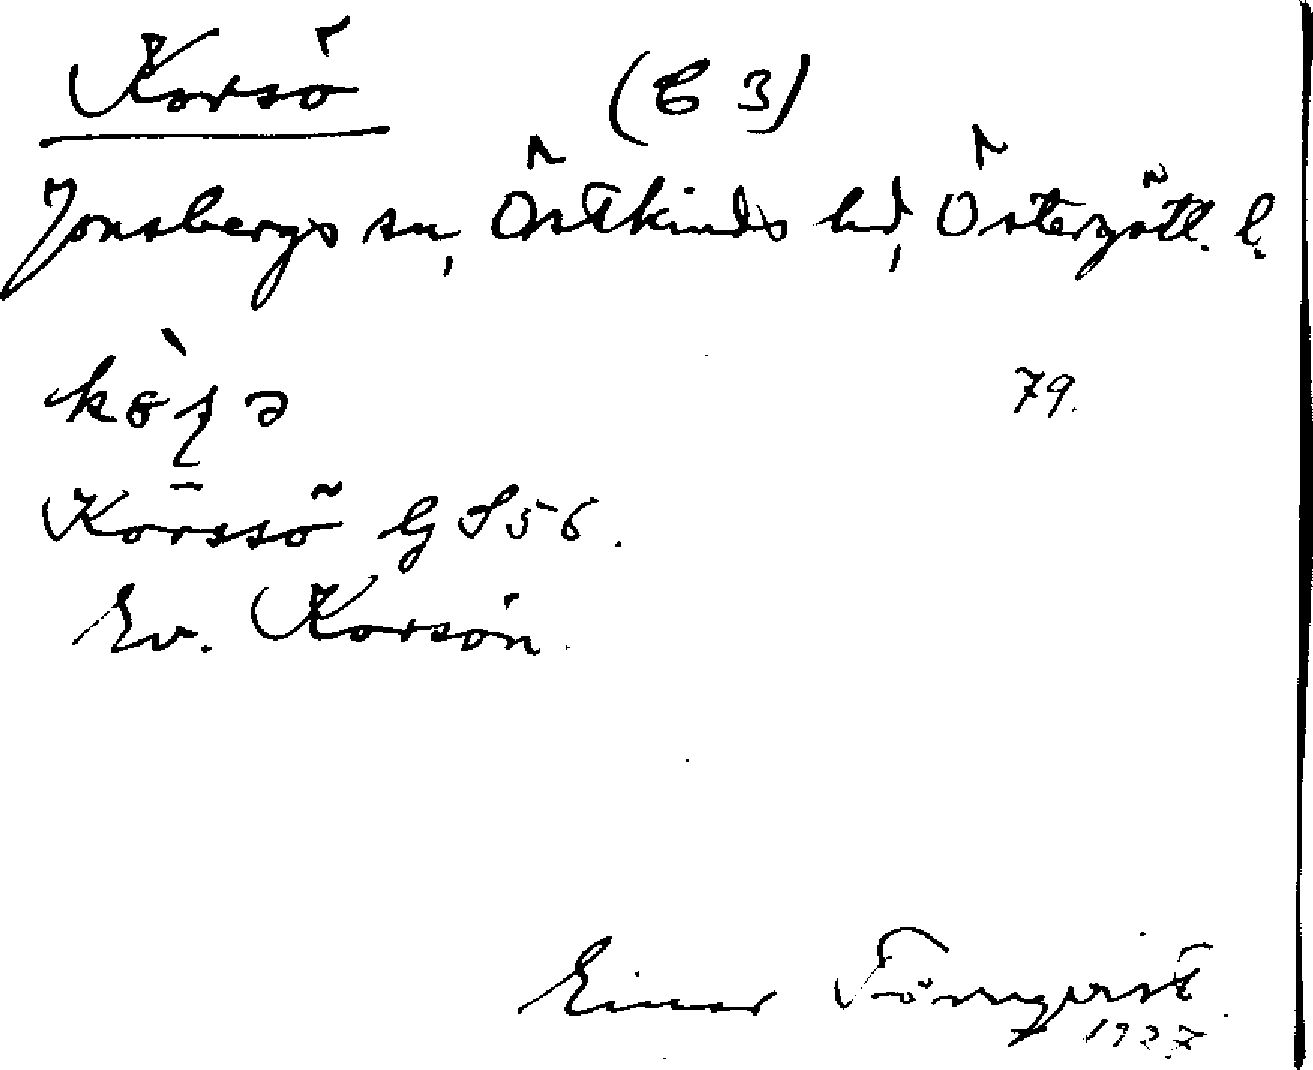 Korsö (E 3)
Jonsbergs sn, Östkinds hd, Östergötl. l.
79.
Korssö G S 56.
Ev. Korsön.
Einar Törnqvist
1927